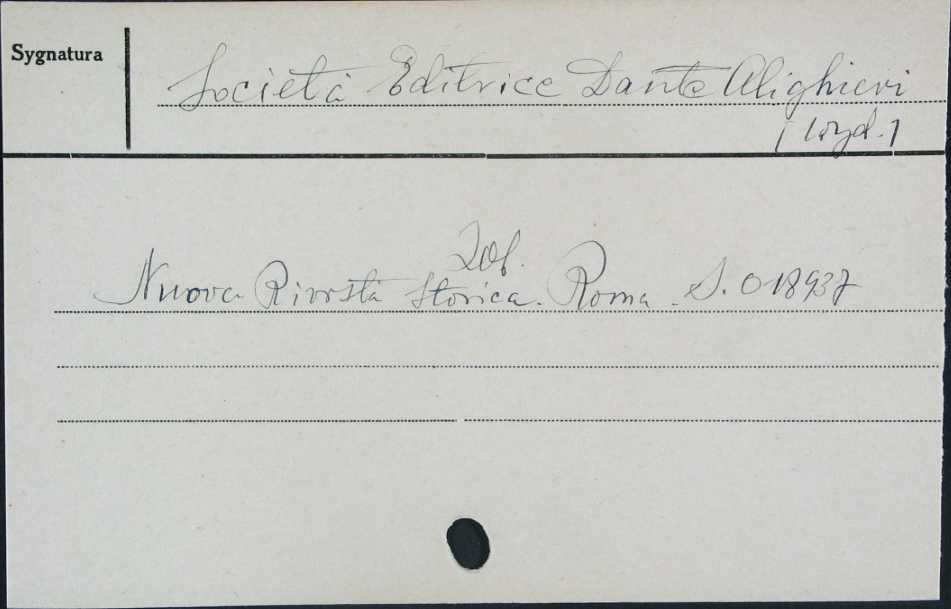 Sygnatura
Società Editrice Dante Alighieri
[wyd.]
Zob.
Nuova Rivista Storica. Roma. S. 018937